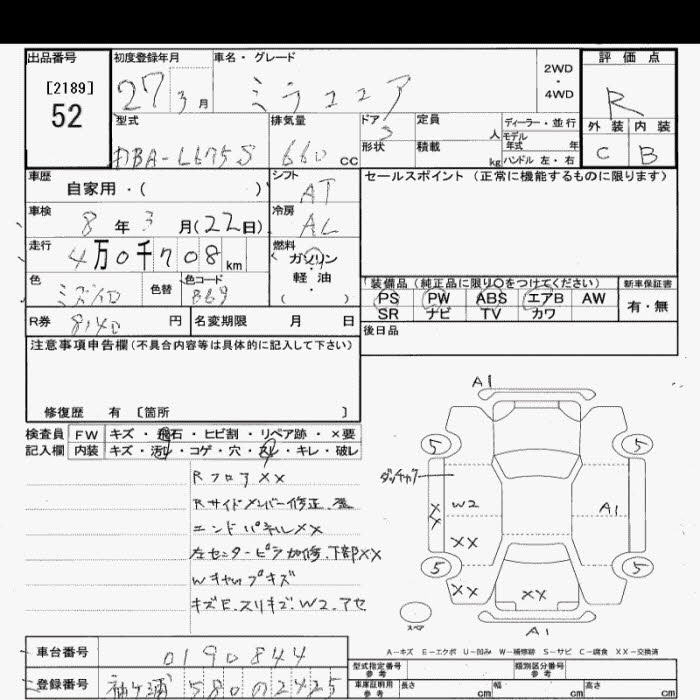 出品番号 初度登録年月 車名・グレード 2WD・4WD 評価点
[2189]
52
27 3月 ミラココア R
型式 排気量 ドア 定員 人 ディーラー・並行 外装 内装
モデル年式 年
DBA-L675S 660cc 5 形状 積載 kg ハンドル 左・右 C B
車歴 自家用・( ) シフト AT セールスポイント (正常に機能するものに限ります)
車検 8年3月(22日) 冷房 AC
走行 4万0千708km 燃料 ガソリン・軽油・( )
色 色替 色コード B69 装備品(純正品に限り○をつけてください) 新車保証書
PS PW ABS エアB AW 有・無
SR ナビ TV カワ
R券 8140円 名変期限 月 日 後日品
注意事項申告欄(不具合内容等は具体的に記入して下さい)
修復歴 有 〔箇所 〕
検査員 FW キズ・飛石・ヒビ割・リペア跡・×要
記入欄 内装 キズ・汚レ・コゲ・穴・スレ・キレ・破レ
RフロアXX
Rサイドメンバー修正
エンドパネルXX
左センターピラ 下部XX
Wキャップキズ
キズE.スリキズ.W2.アセ
A1
5 5
W2 A1
XX
XX
5 5
XX XX
スペア
A1
A-キズ E-エクボ U-凹み W-補修跡 S-サビ C-腐食 XX-交換済
車台番号 0190844 型式指定番号 参考 類別区分番号 参考
登録番号 袖ヶ浦 580 の 2425 車庫証明用 参考 長さ cm 幅 cm 高さ cm